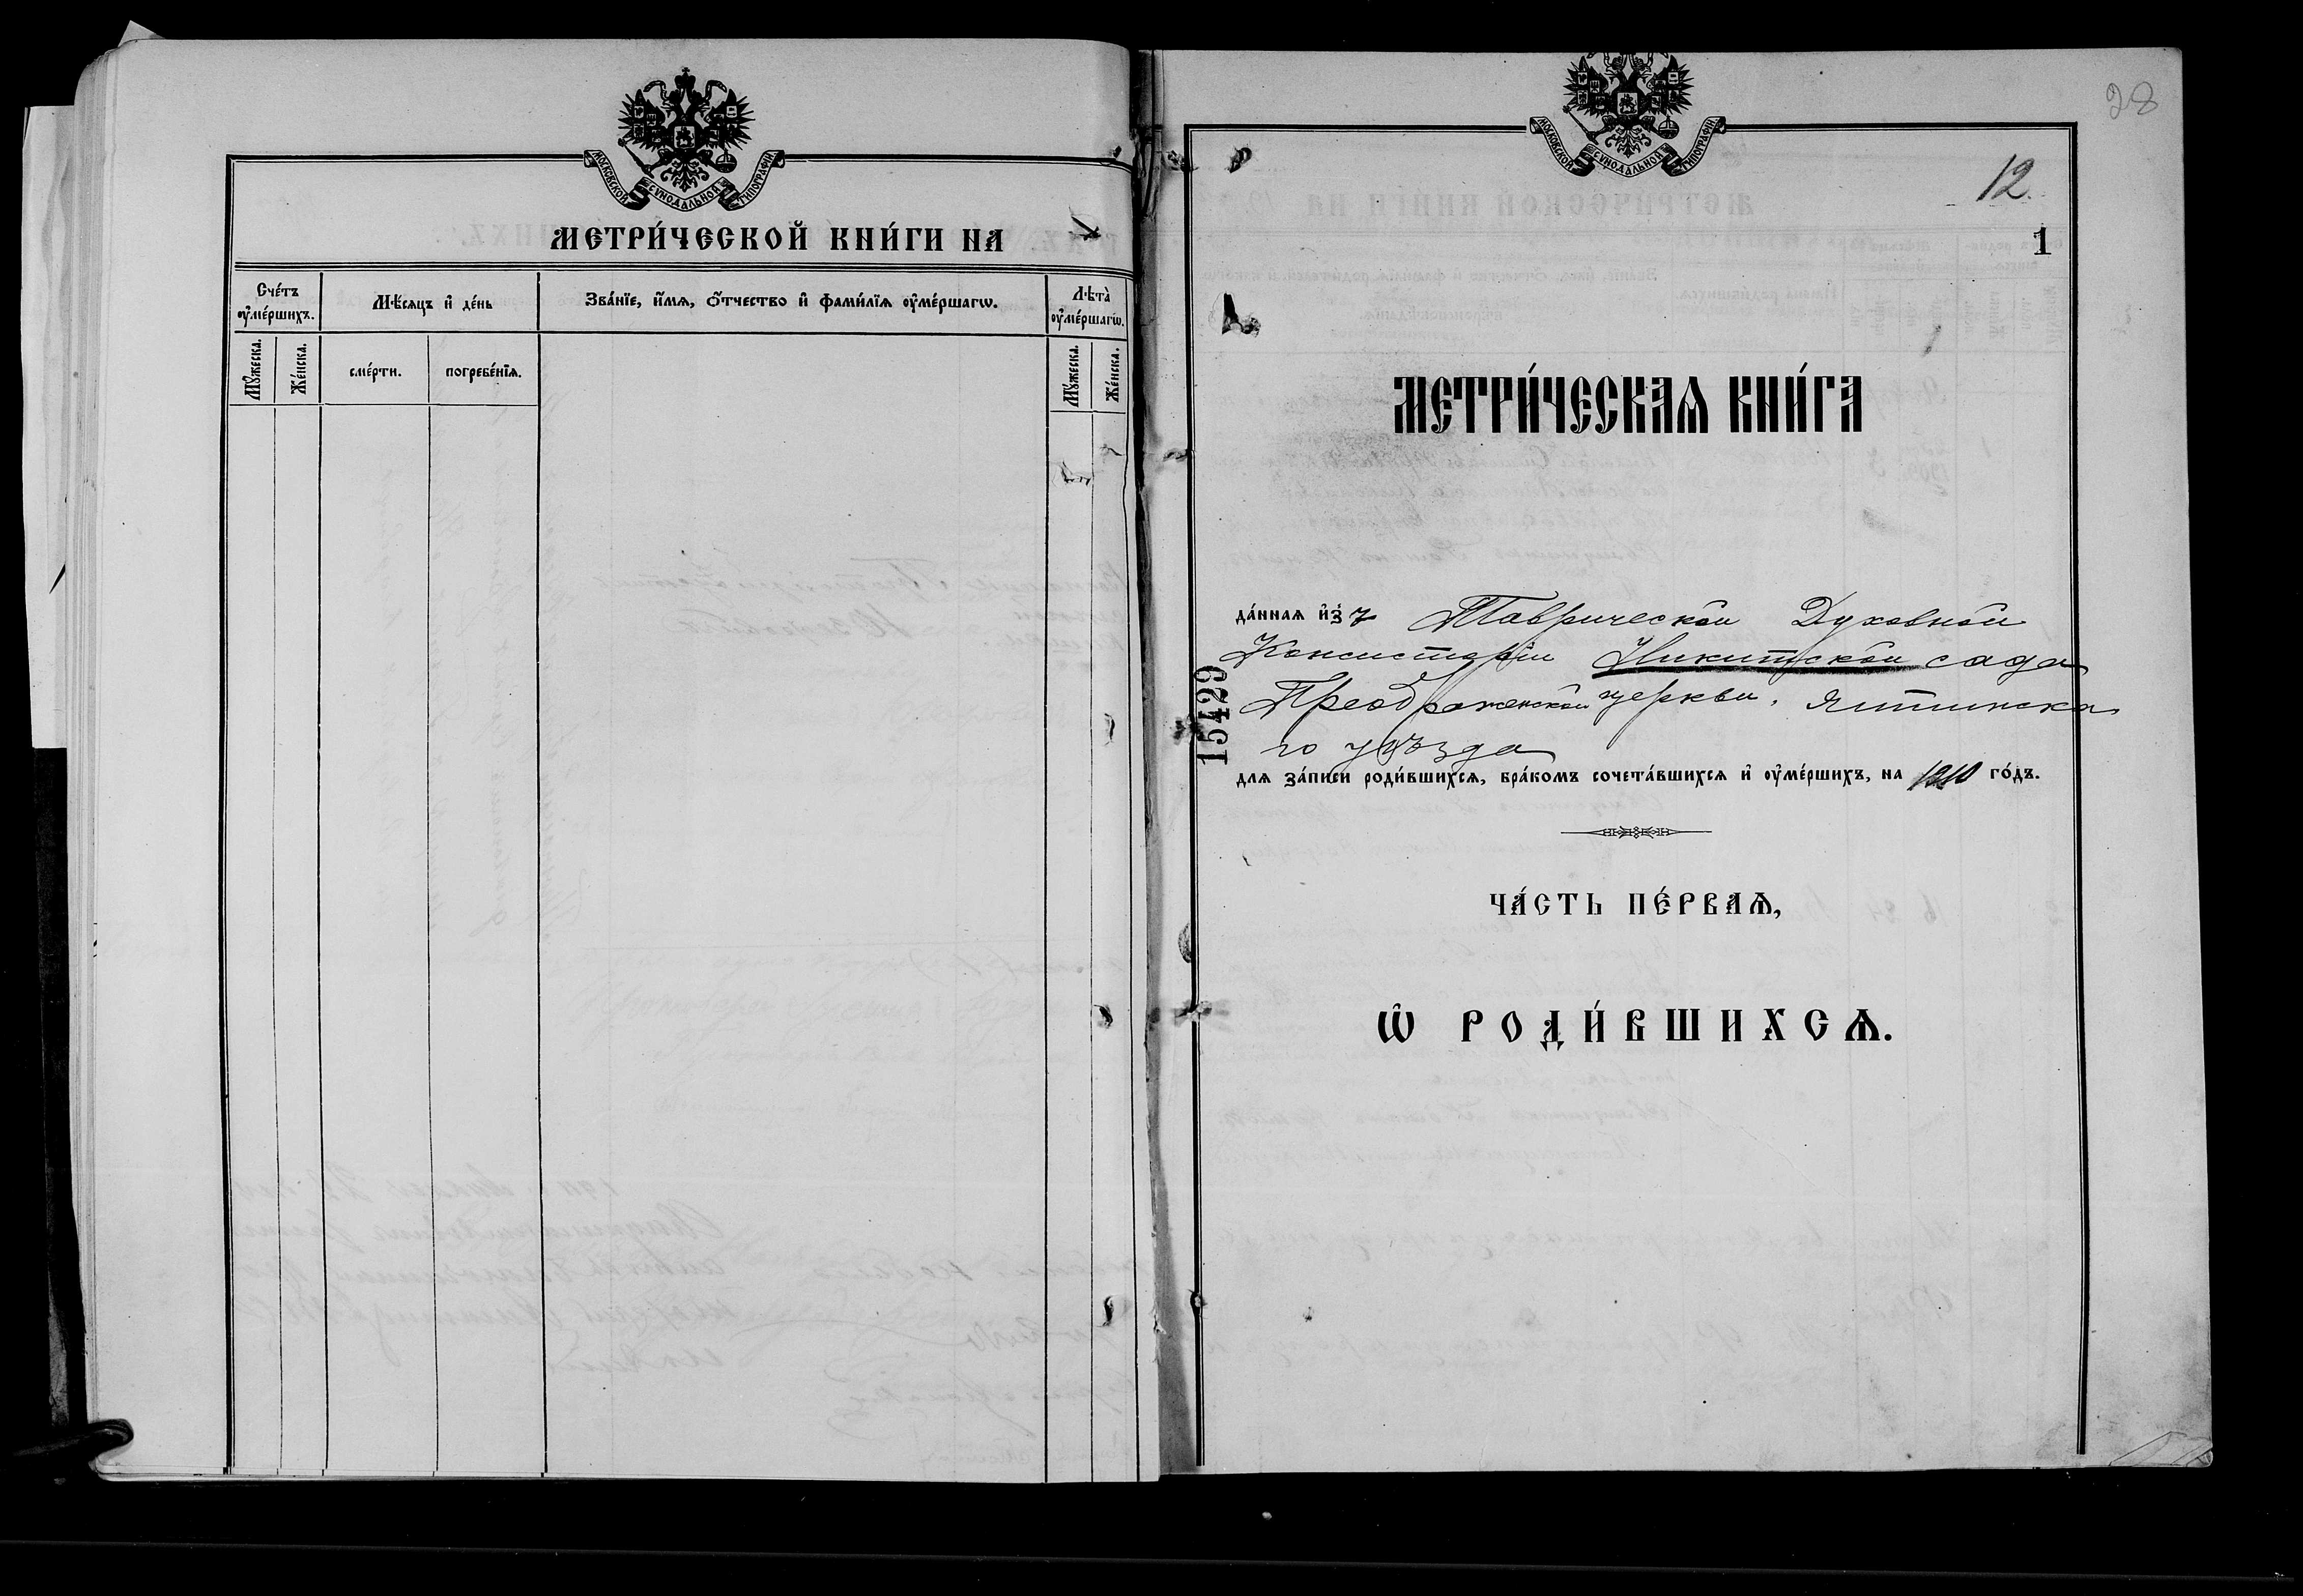 МОСКОВСКОЙ СѴНОДАЛЬНОЙ ТИПОГРАФІИ.
МЕТРИ́ЧЕСКОЙ КНИ́ГИ НА
Сче́тъ ᲂу҆ме́ршихъ.
Мѣ́сяцъ и҆ де́нь
Зва́нїе, и҆́мѧ, ѻ҆́тчество и҆ фами́лїѧ ᲂу҆ме́ршагѡ.
Лѣта̀ ᲂу҆ме́ршагѡ.
Мꙋ́жеска.
Же́нска.
сме́рти.
погребе́нїѧ.
Мꙋ́жеска.
Же́нска.
28
МОСКОВСКОЙ СѴНОДАЛЬНОЙ ТИПОГРАФІИ.
12
1
МЕТРИ́ЧЕСКАѦ КНИ́ГА
да́нная и҆зъ Таврической Духовной
Консисторіи Никитской сада
Преображенской церкви, Ялтинска
го уѣзда
15429
для за́писи роди́вшихсѧ, бра́комъ сочета́вшихсѧ и҆ ᲂу҆ме́ршихъ, на 1910 го́дъ.
ЧА́СТЬ ПЕ́РВАѦ,
Ѽ РОДИ́ВШИХСѦ.